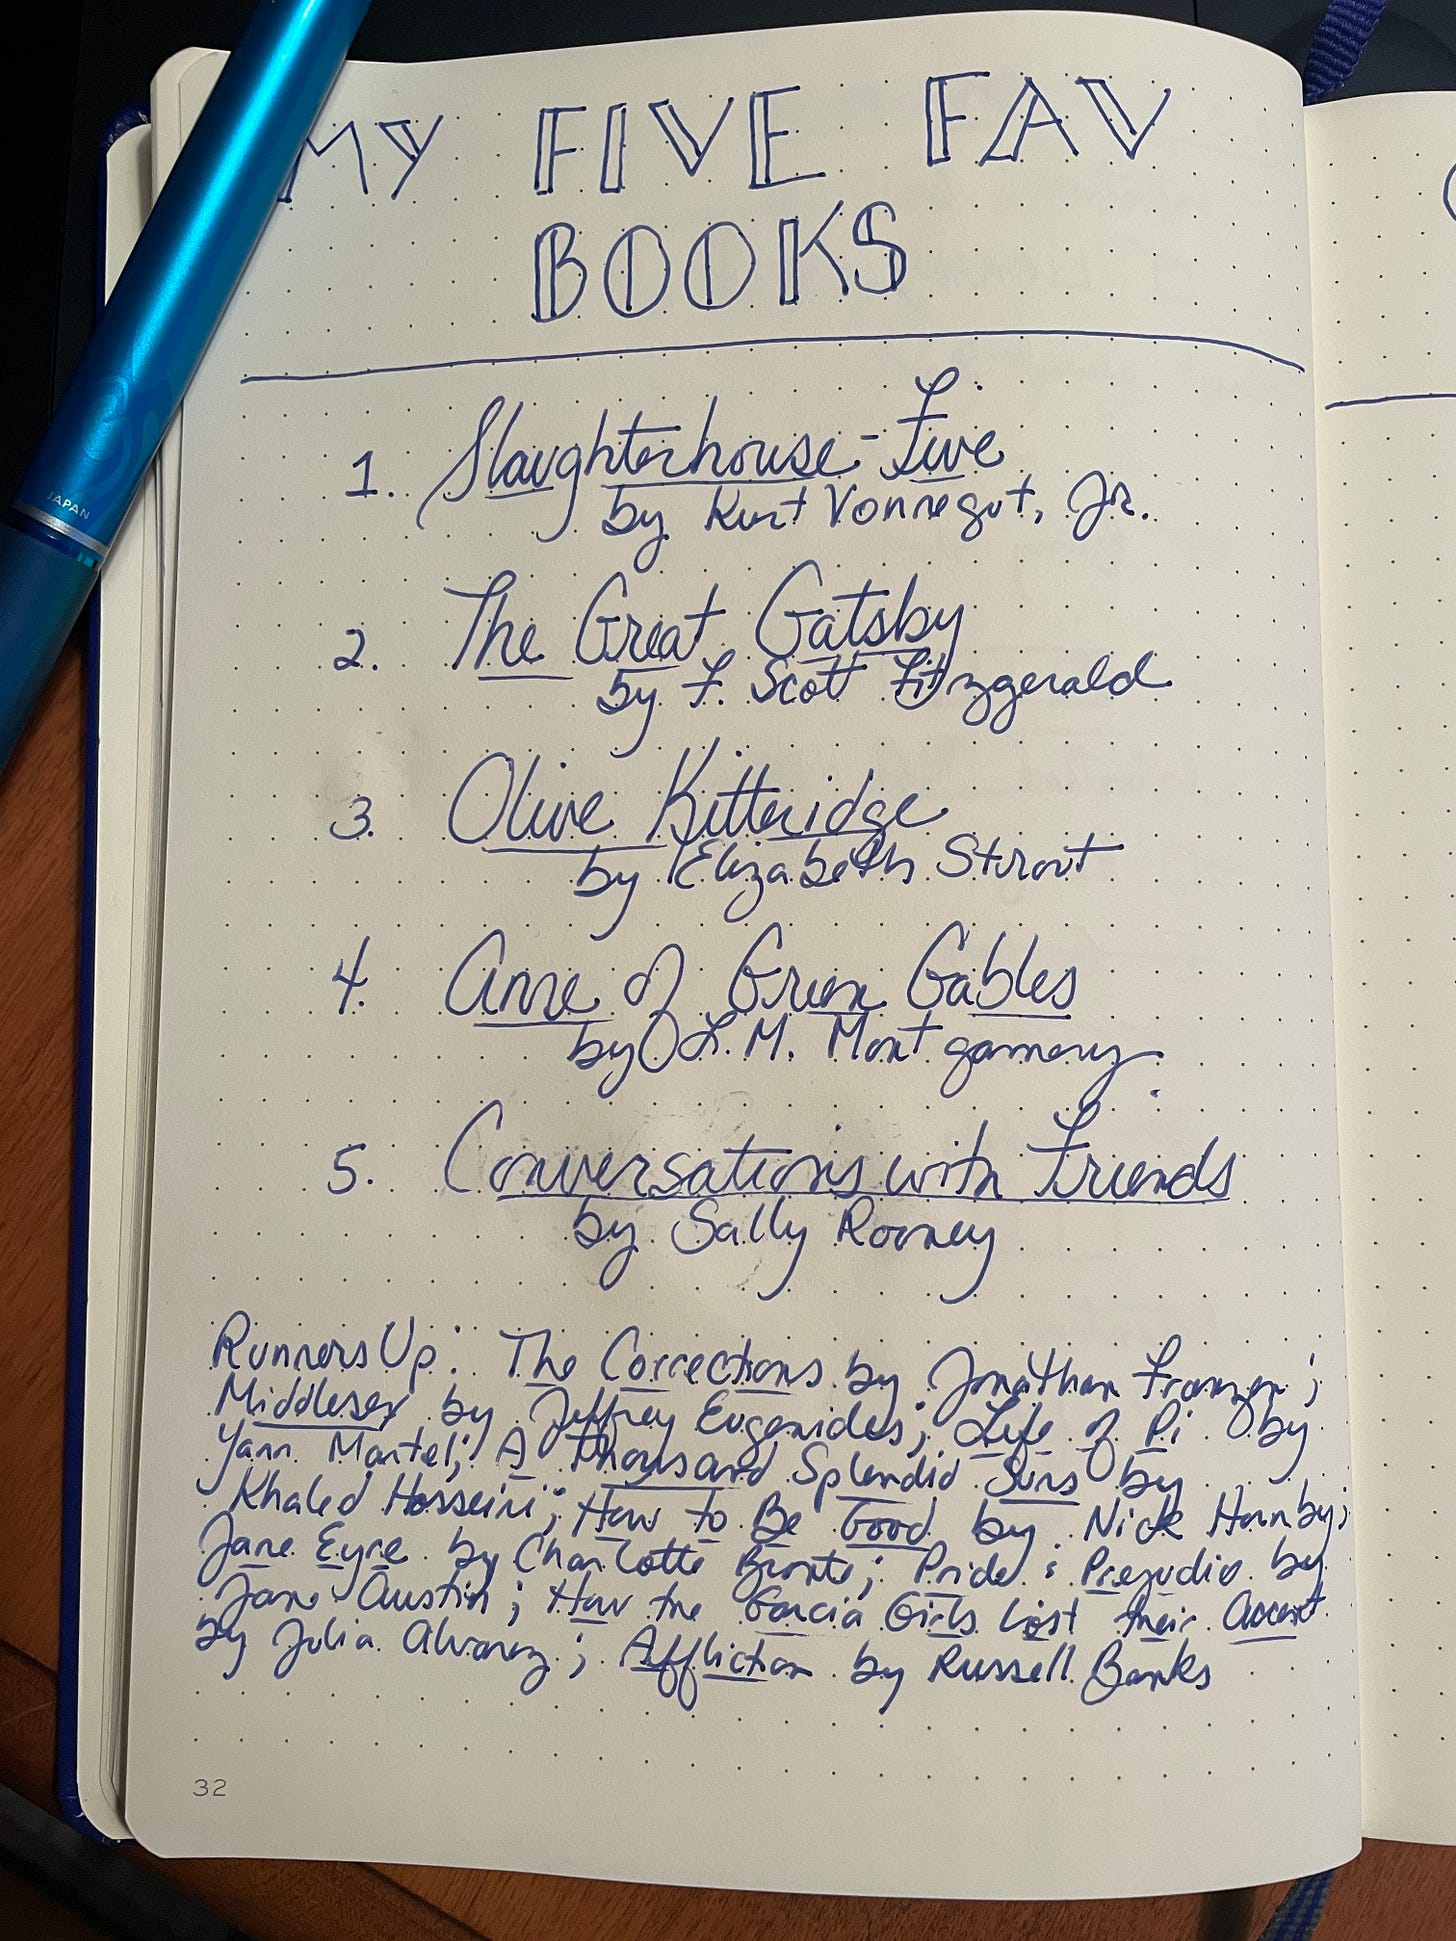 MY FIVE FAV
BOOKS
1. Slaughterhouse-Five
by Kurt Vonnegut, Jr.
2. The Great Gatsby
by F. Scott Fitzgerald
3. Olive Kitteridge
by Elizabeth Strout
4. Anne of Green Gables
by L.M. Montgomery
5. Conversations with Friends
by Sally Rooney
Runners Up: The Corrections by Jonathan Franzen;
Middlesex by Jeffrey Eugenides; Life of Pi by
Yann Martel; A Thousand Splendid Suns by
Khaled Hosseini; How to Be Good by Nick Hornby;
Jane Eyre by Charlotte Bronte; Pride & Prejudice by
Jane Austin; How the Garcia Girls Lost Their Accent
by Julia Alvarez; Affliction by Russell Banks
32
JAPAN